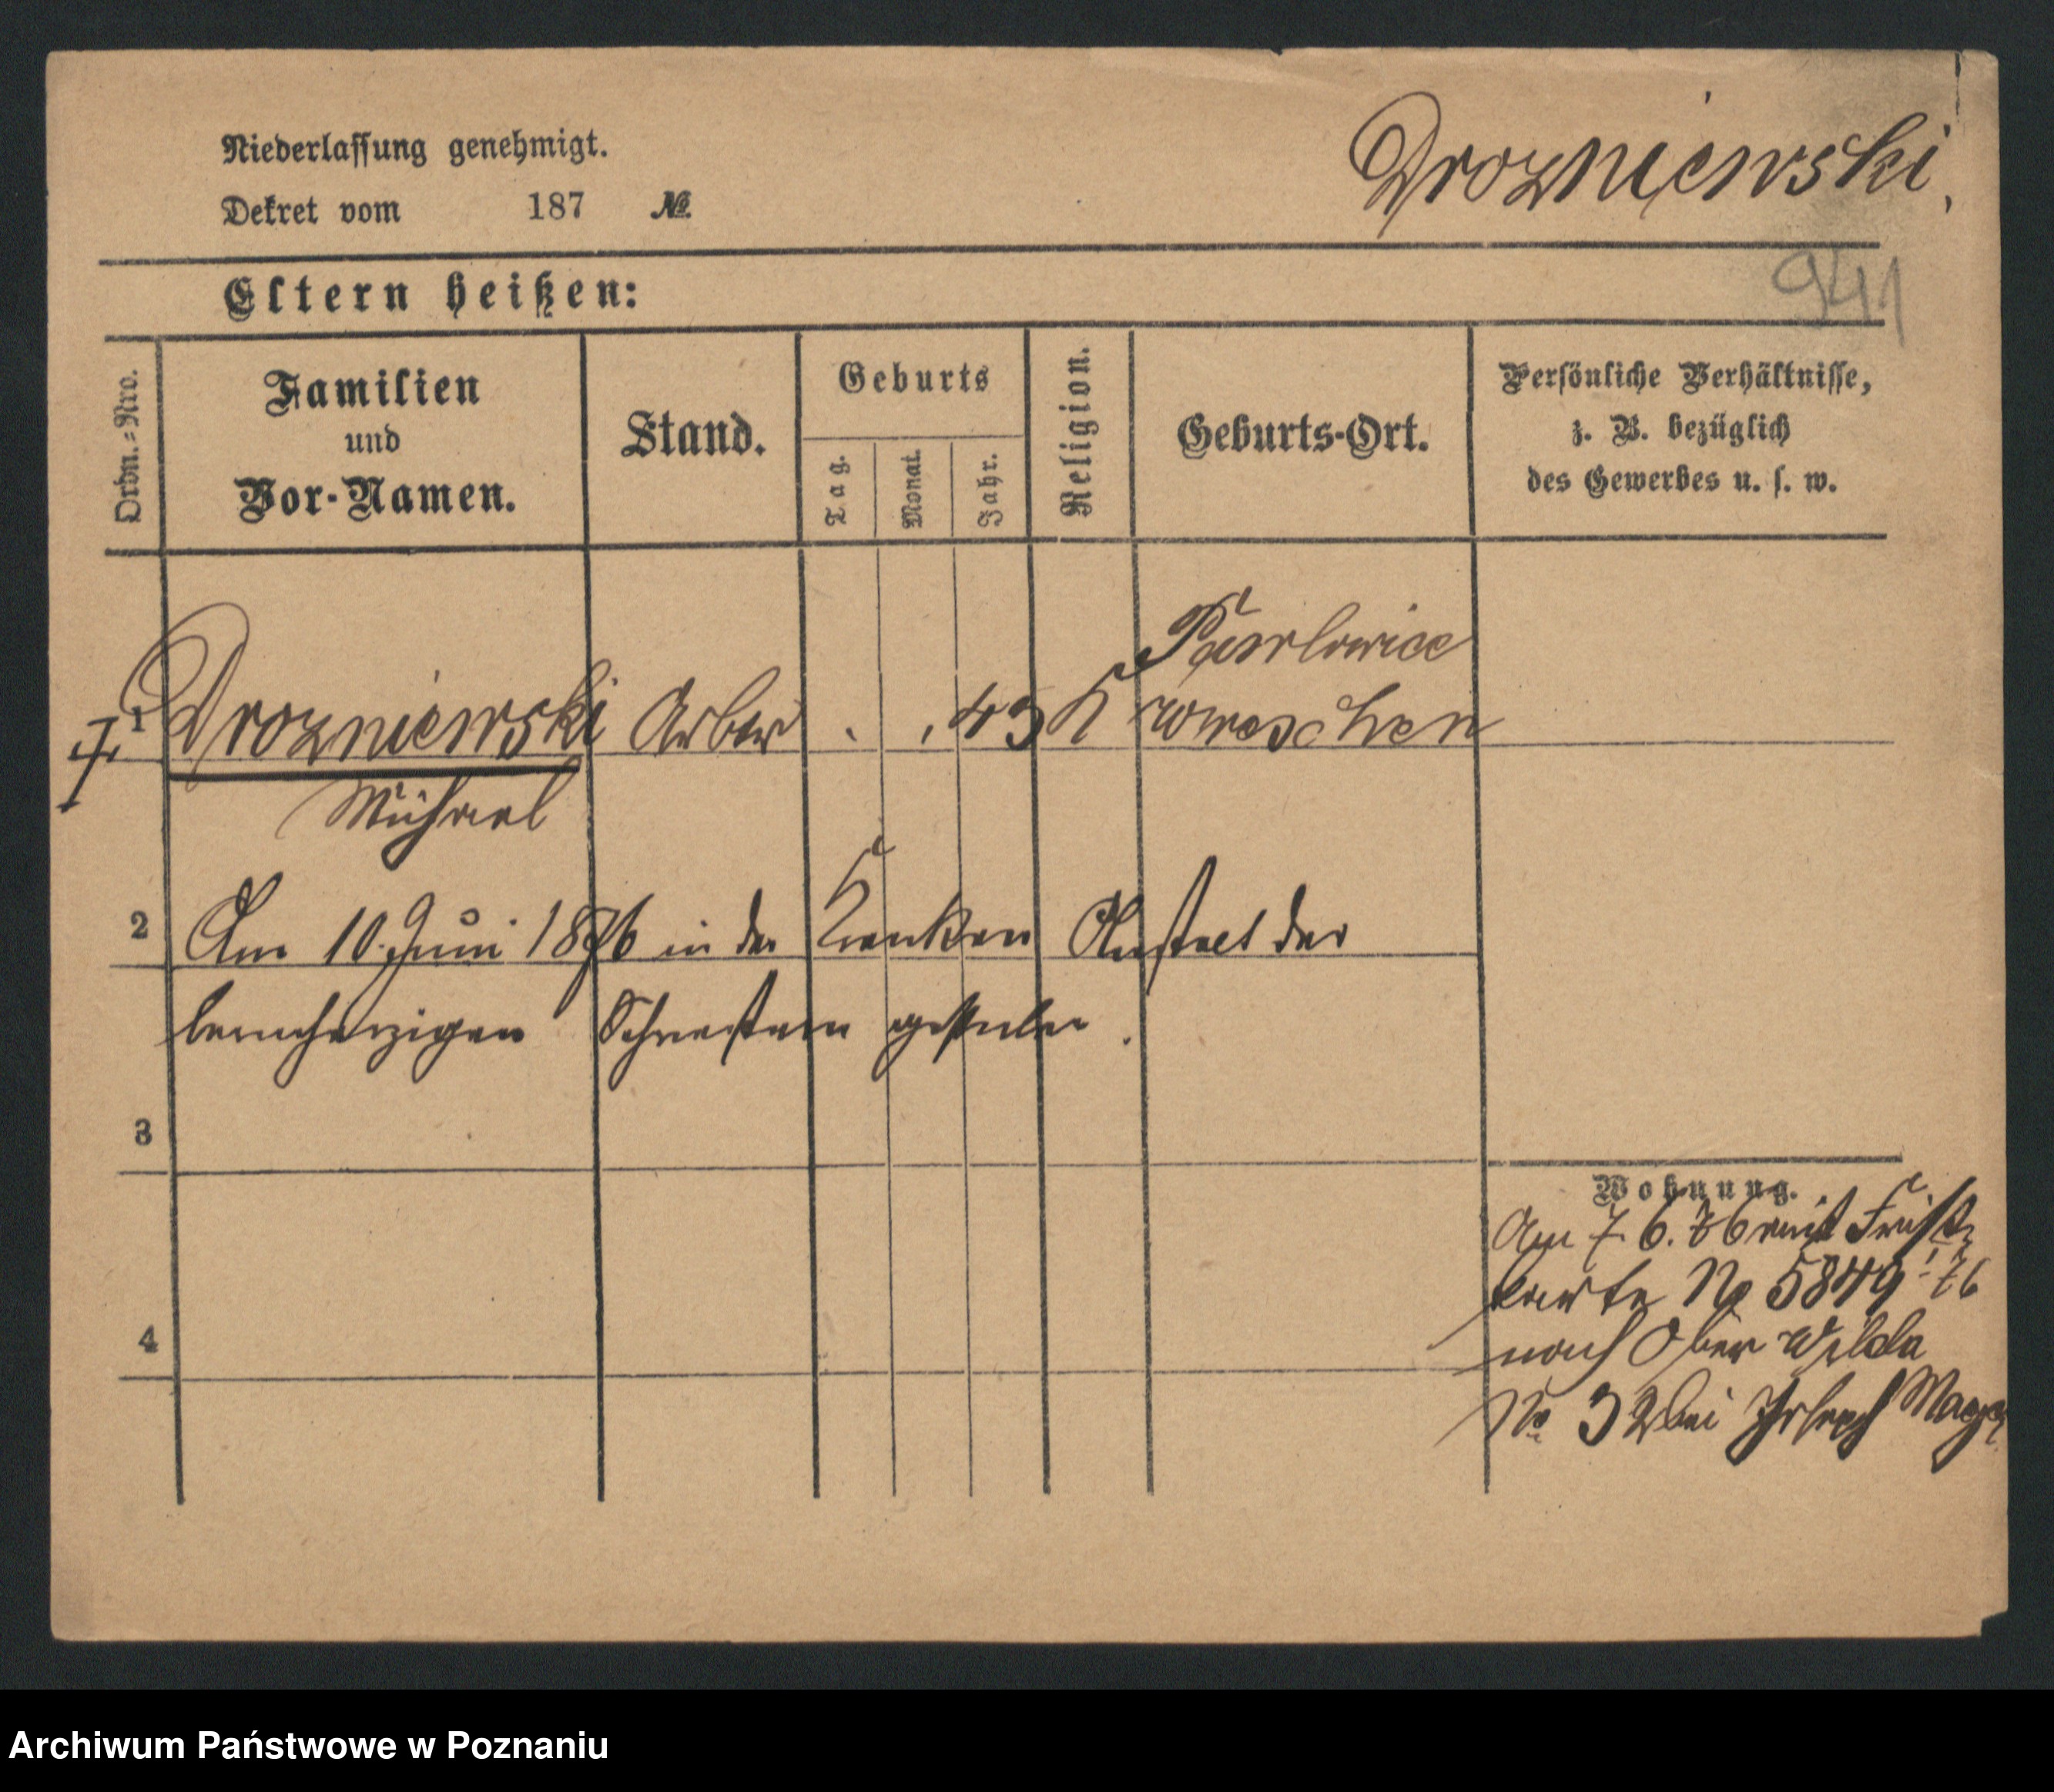 Niederlassung genehmigt.
Dekret vom 187 №
Drozniewski,
941
Eltern heißen:
Ordn.=Nro.
Familien
und
Vor-Namen.
Stand.
Geburts
Tag.
Monat.
Jahr.
Religion.
Geburts-Ort.
Persönliche Verhältnisse,
z. B. bezüglich
des Gewerbes u. s. w.
Pawlowice
1 Drozniewski Arbtr . . 43 K Wreschen
Michael
2 Am 10. Juni 1876 in der Kranken Anstalt der
barmherzigen Schwestern gestorben.
3
4
Wohnung.
Am 7. 6. 76 mit Frist
karte No 5849/76
nach Ober Wilda
No 32 bei
Archiwum Państwowe w Poznaniu